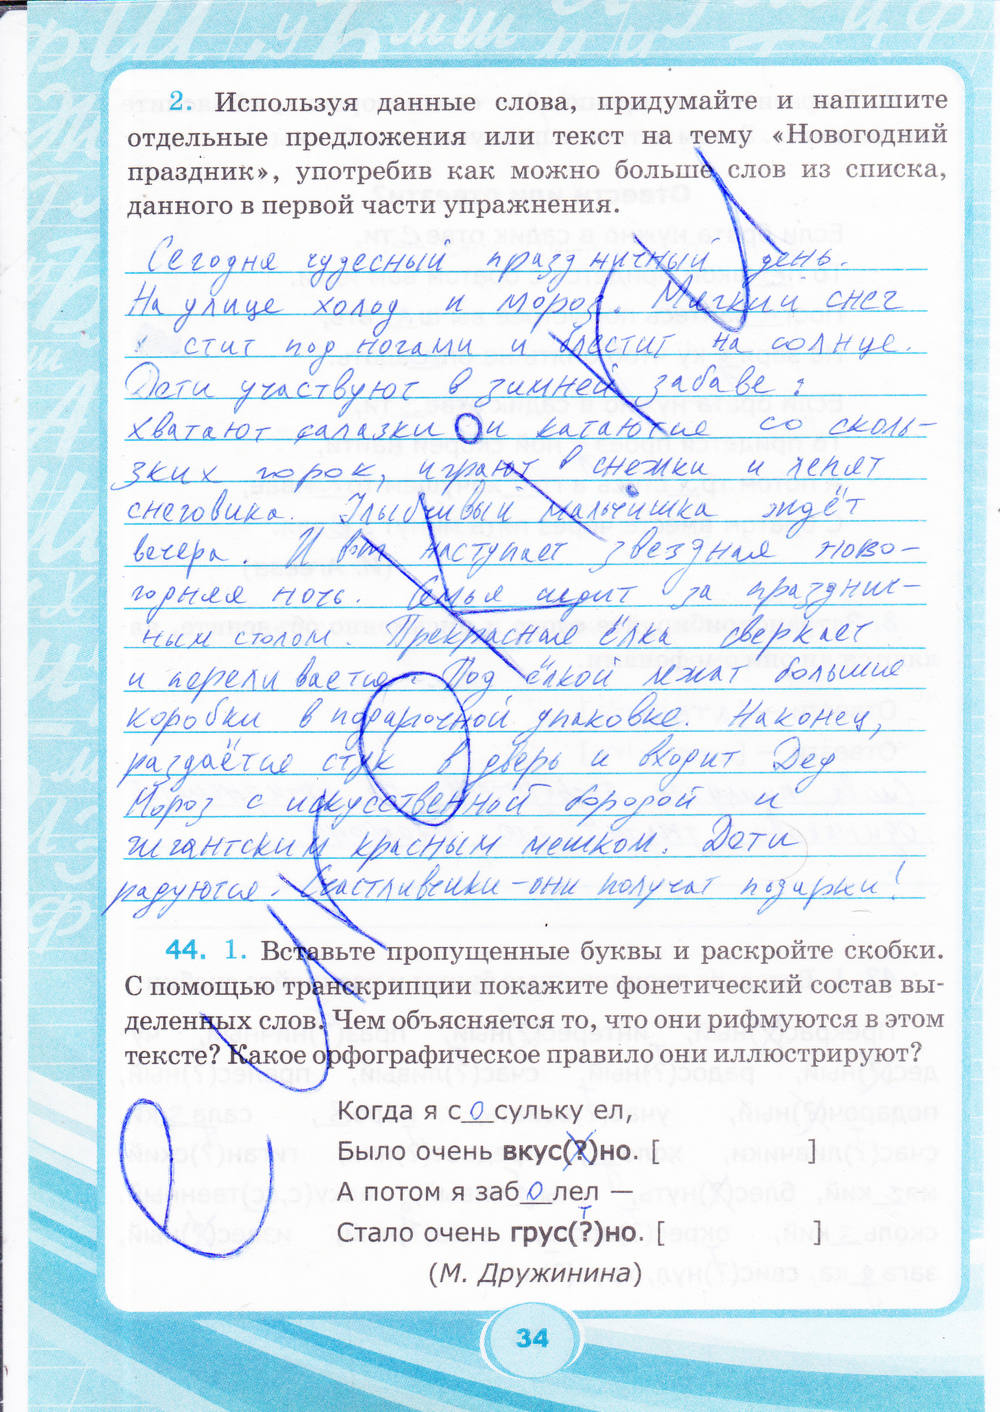 2. Используя данные слова, придумайте и напишите
отдельные предложения или текст на тему «Новогодний
праздник», употребив как можно больше слов из списка,
данного в первой части упражнения.
Сегодня чудесный праздничный день.
На улице холод и мороз. Мягкий снег
стит под ногами и блестит на солнце.
Дети участвуют в зимней забаве:
хватают салазки и катаются со сколь-
зких горок, играют в снежки и лепят
снеговика. Улыбчивый мальчишка ждёт
вечера. И вот наступает звездная ново-
годняя ночь. Семья сидит за празднич-
ным столом. Прекрасная ёлка сверкает
и переливается. Под ёлкой лежат большие
коробки в подарочной упаковке. Наконец,
раздаётся стук в дверь и входит Дед
Мороз с искусственной бородой и
гигантским красным мешком. Дети
радуются. Счастливчики – они получат подарки!
44. 1. Вставьте пропущенные буквы и раскройте скобки.
С помощью транскрипции покажите фонетический состав вы-
деленных слов. Чем объясняется то, что они рифмуются в этом
тексте? Какое орфографическое правило они иллюстрируют?
Когда я с о сульку ел,
Было очень вкус(?)но. [ ]
А потом я заб о лел —
т
Стало очень грус(?)но. [ ]
(М. Дружинина)
34